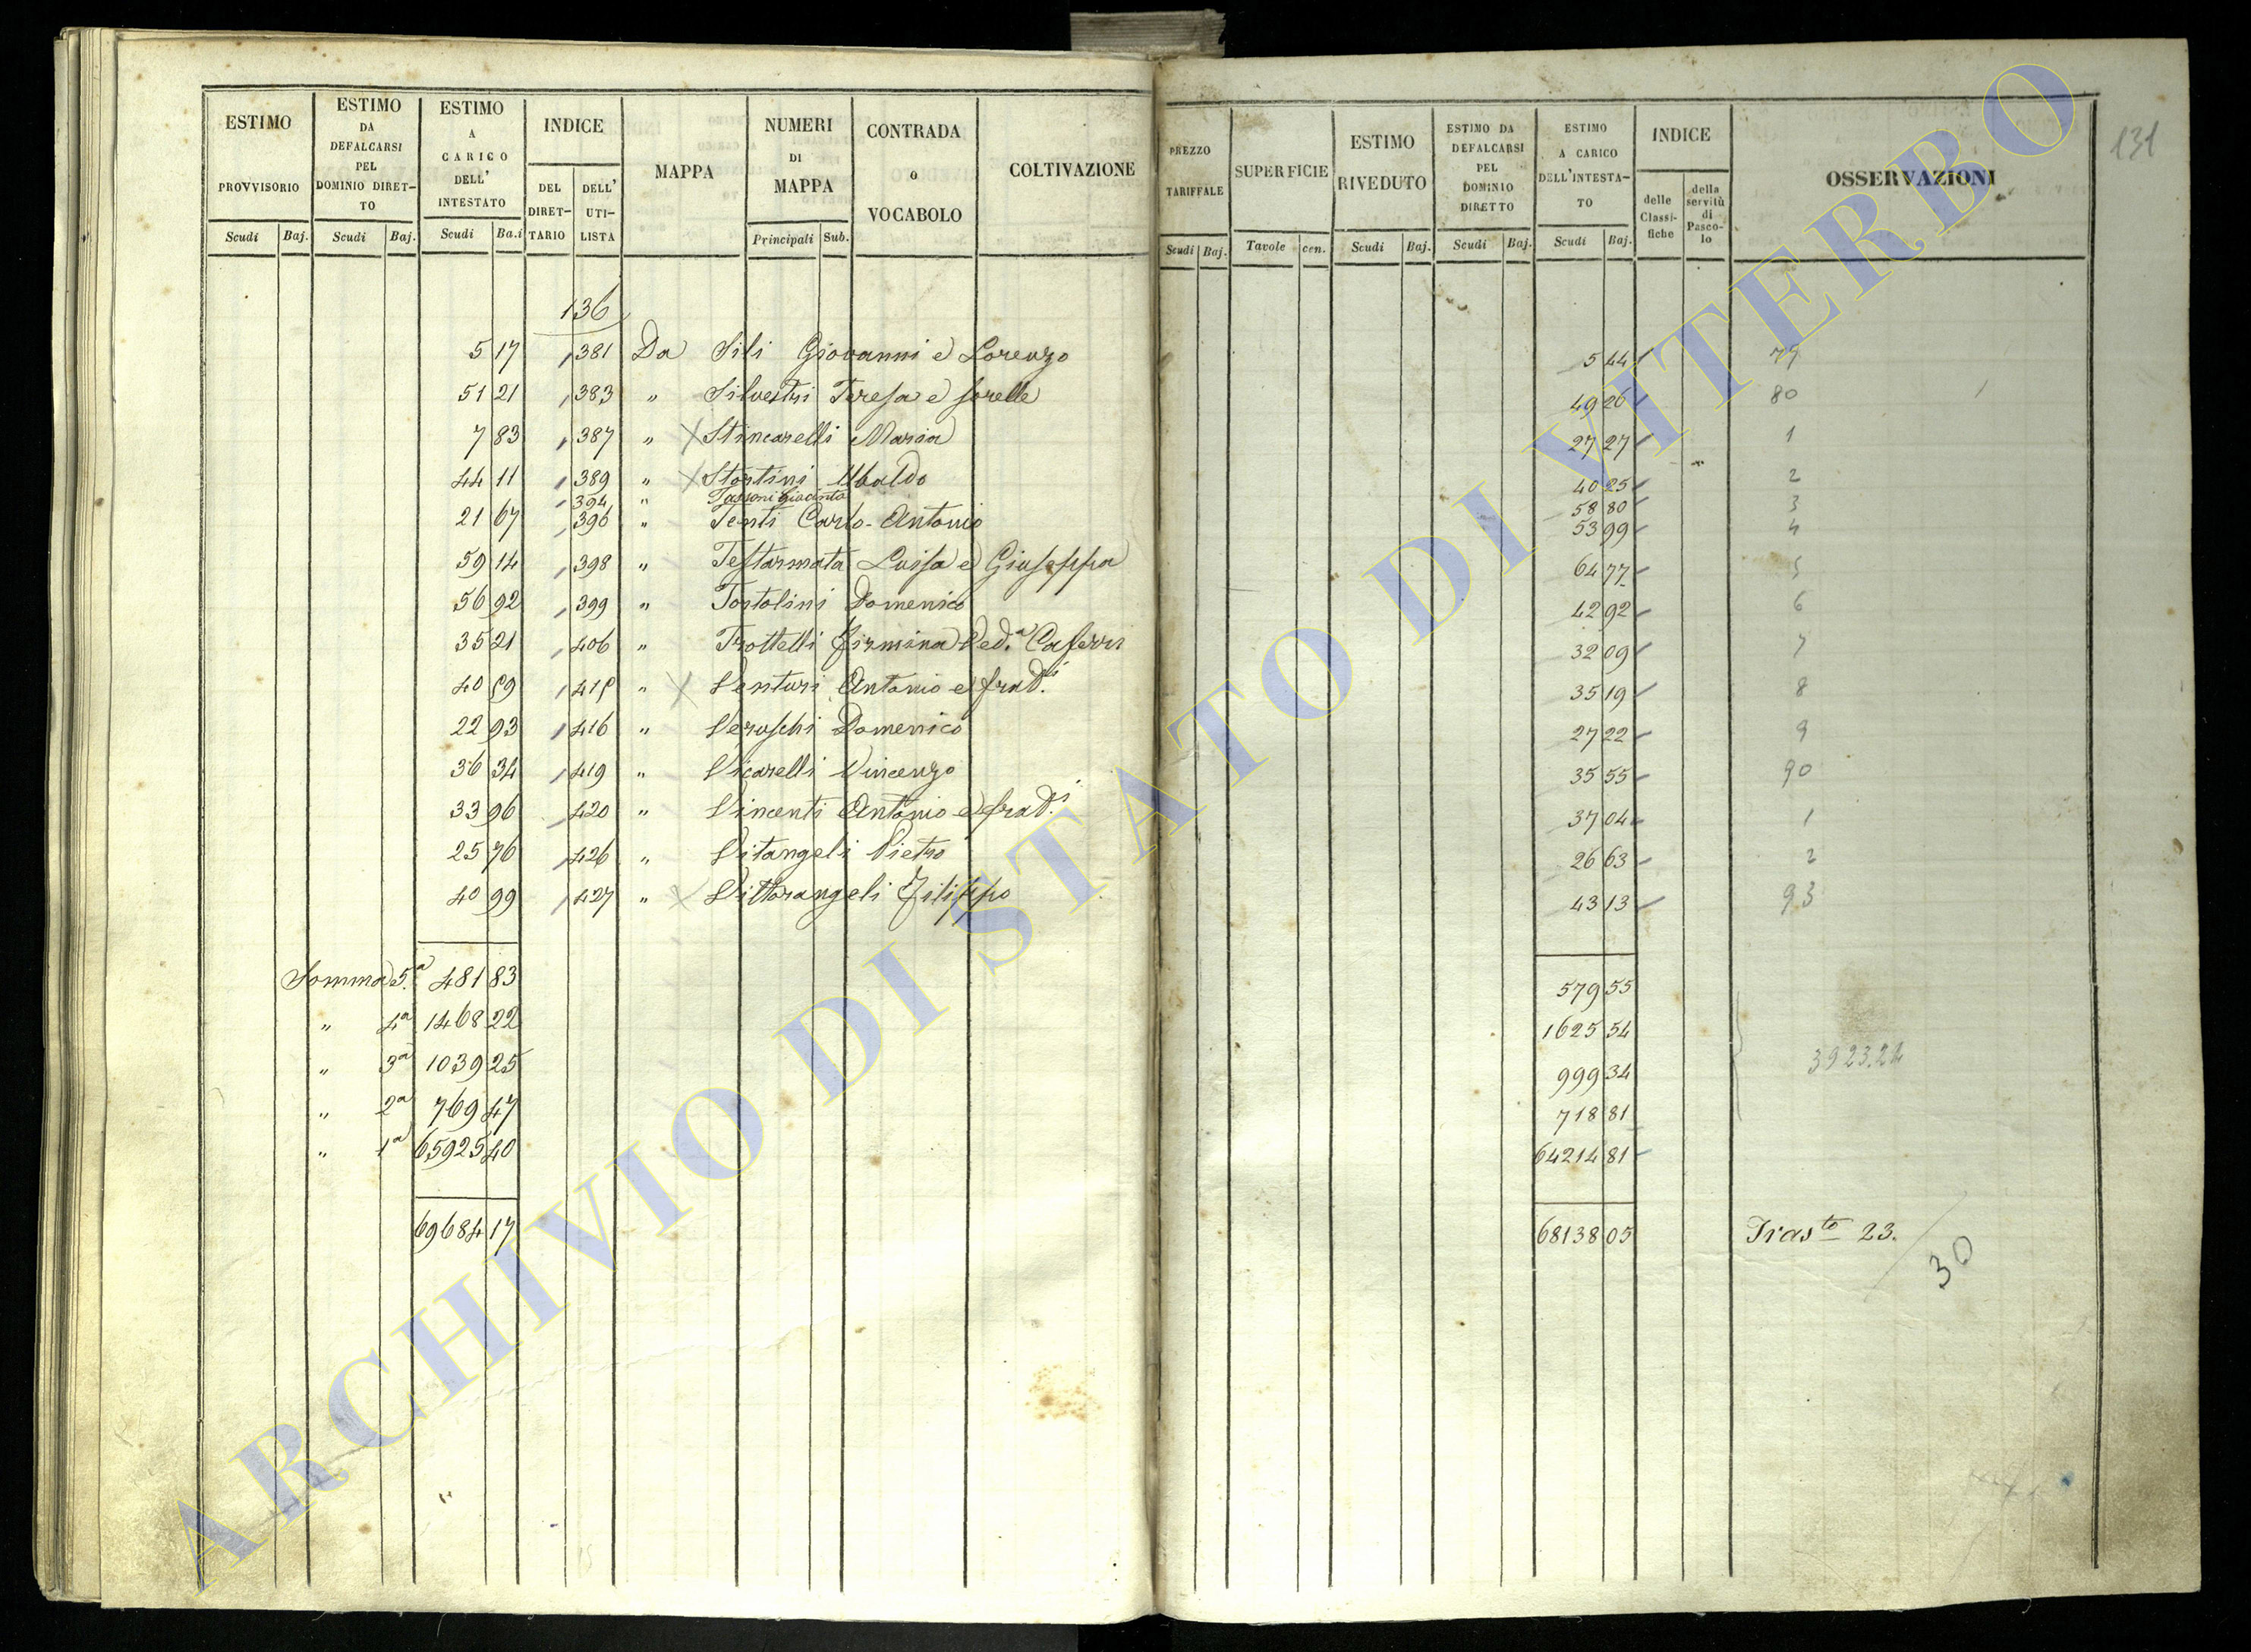 ESTIMO PROVVISORIO Scudi Baj.
ESTIMO DA DEFALCARSI PEL DOMINIO DIRET-TO Scudi Baj.
ESTIMO A CARICO DELL' INTESTATO Scudi Ba.i
INDICE DEL DIRET-TARIO DELL' UTI-LISTA
MAPPA
NUMERI DI MAPPA Principali Sub.
CONTRADA o VOCABOLO
COLTIVAZIONE
PREZZO TARIFFALE Scudi Baj.
SUPERFICIE Tavole cen.
ESTIMO RIVEDUTO Scudi Baj.
ESTIMO DA DEFALCARSI PEL DOMINIO DIRETTO Scudi Baj.
ESTIMO A CARICO DELL'INTESTA-TO Scudi Baj.
INDICE delle Classi-fiche della servitù di Pasco-lo
OSSERVAZIONI
131
136
5 17 381 Da Sili Giovanni e Lorenzo 5 44 79
51 21 383 " Silvestri Teresa e sorelle 49 26 80
7 83 387 " Stincarelli Maria 27 27 1
44 11 389 " Stortini Ubaldo 40 25 2
394 " Tassoni Giacinto 58 80 3
21 67 396 " Tenti Carlo Antonio 53 99 4
59 14 398 " Testarmata Luisa e Giuseppa 64 77 5
56 92 399 " Tortolini Domenico 42 92 6
35 21 406 " Trottelli Firmina Ved.a Caferri 32 09 7
40 59 415 " Venturi Antonio e frat.i 35 19 8
22 93 416 " Veruschi Domenico 27 22 9
36 34 419 " Vicarelli Vincenzo 35 55 90
33 96 420 " Vincenti Antonio e frat.i 37 04 1
25 76 426 " Vitangeli Pietro 26 63 2
40 99 427 " Vittorangeli Filippo 43 13 93
Somma 5.a 481 83 579 55
" 4a 1468 22 1625 54
" 3a 1039 25 999 34 3923.24
" 2a 769 47 718 81
" 1a 65925 40 64214 81
69684 17 68138 05 Trasto 23.
30
ARCHIVIO DI STATO DI VITERBO